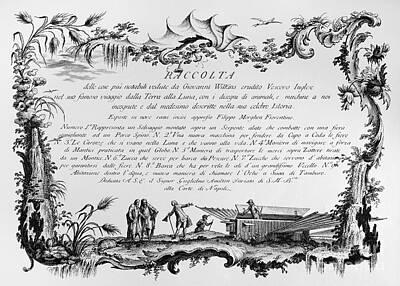 RACCOLTA
delle cose più notabili vedute da Giovanni Wilkins erudito Vescovo Inglese
nel suo famoso viaggio dalla Terra alla Luna, con i disegni di animali, e machine a noi
incognite e dal medesimo descritte nella sua celebre Istoria.
Esposte in nove rami incisi appresso Filippo Morghen Fiorentino.
Numero 1.° Rappresenta un Selvaggio montato sopra un Serpente alato che combatte con una fiera
simile ad un Porco Spino. N. 2.° Una nuova machina per fendere da Capo a Coda le fiere
N. 3.° Le Carozze che si usano nella Luna e che vanno alla vela N. 4.° Maniera di navigare a forza
di Mantici praticata in quei Globi N. 5.° Maniera di trasportare le merci sopra Zattere tirate
da un Mantice N. 6.° Zucca che serve per barca da Pescare N. 7.° Zucche che servono d'abitazione
per garantirsi dalle fiere N. 8.° Barca che ha per vela le ali d'un grandissimo Uccello N. 9.°
Abitazione dentro l'aqua, e nuova maniera di chiamare l'Oche a Suon di Tamburo.
Dedicata A S. E. il Signor Guglielmo Amilton Inviato di S. M. B.
alla Corte di Napoli